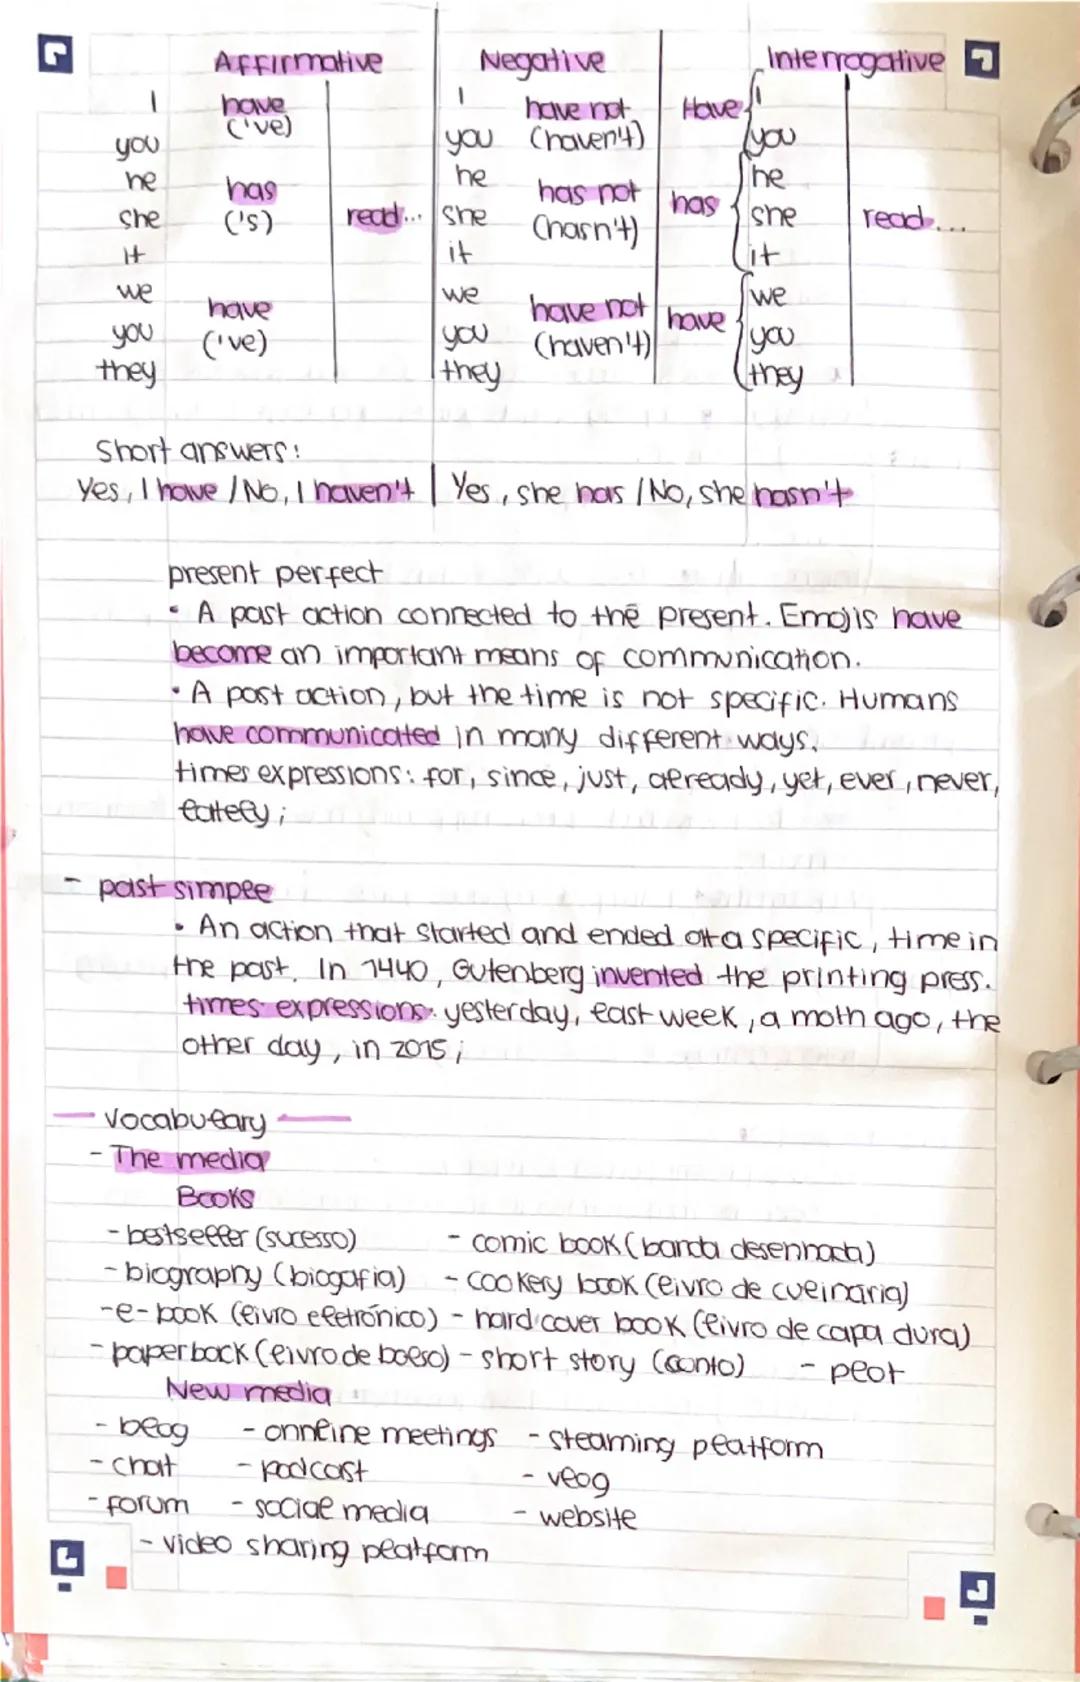 Affirmative Negative Interrogative
I have I have not Have I
('ve) (haven't)
you you you
he has he has not has he
she ('s) read... she (hasn't) she read...
it it it
we have we have not have we
you ('ve) you (haven't) you
they they they
Short answers:
Yes, I have / No, I haven't | Yes, she has / No, she hasn't
present perfect
• A past action connected to the present. Emojis have
become an important means of communication.
• A past action, but the time is not specific. Humans
have communicated in many different ways.
times expressions: for, since, just, already, yet, ever, never,
lately;
- past simple
• An action that started and ended at a specific, time in
the past. In 1440, Gutenberg invented the printing press.
times expressions: yesterday, last week, a moth ago, the
other day, in 2015;
— Vocabulary —
- The media
Books
- bestseller (sucesso) - comic book (banda desenhada)
- biography (biogafia) - cookery book (livro de culinária)
- e-book (livro eletrónico) - hard cover book (livro de capa dura)
- paperback (livro de bolso) - short story (conto) - plot
New media
- blog - onnline meetings - steaming platform
- chat - podcast - vlog
- forum - social media - website
- video sharing platform